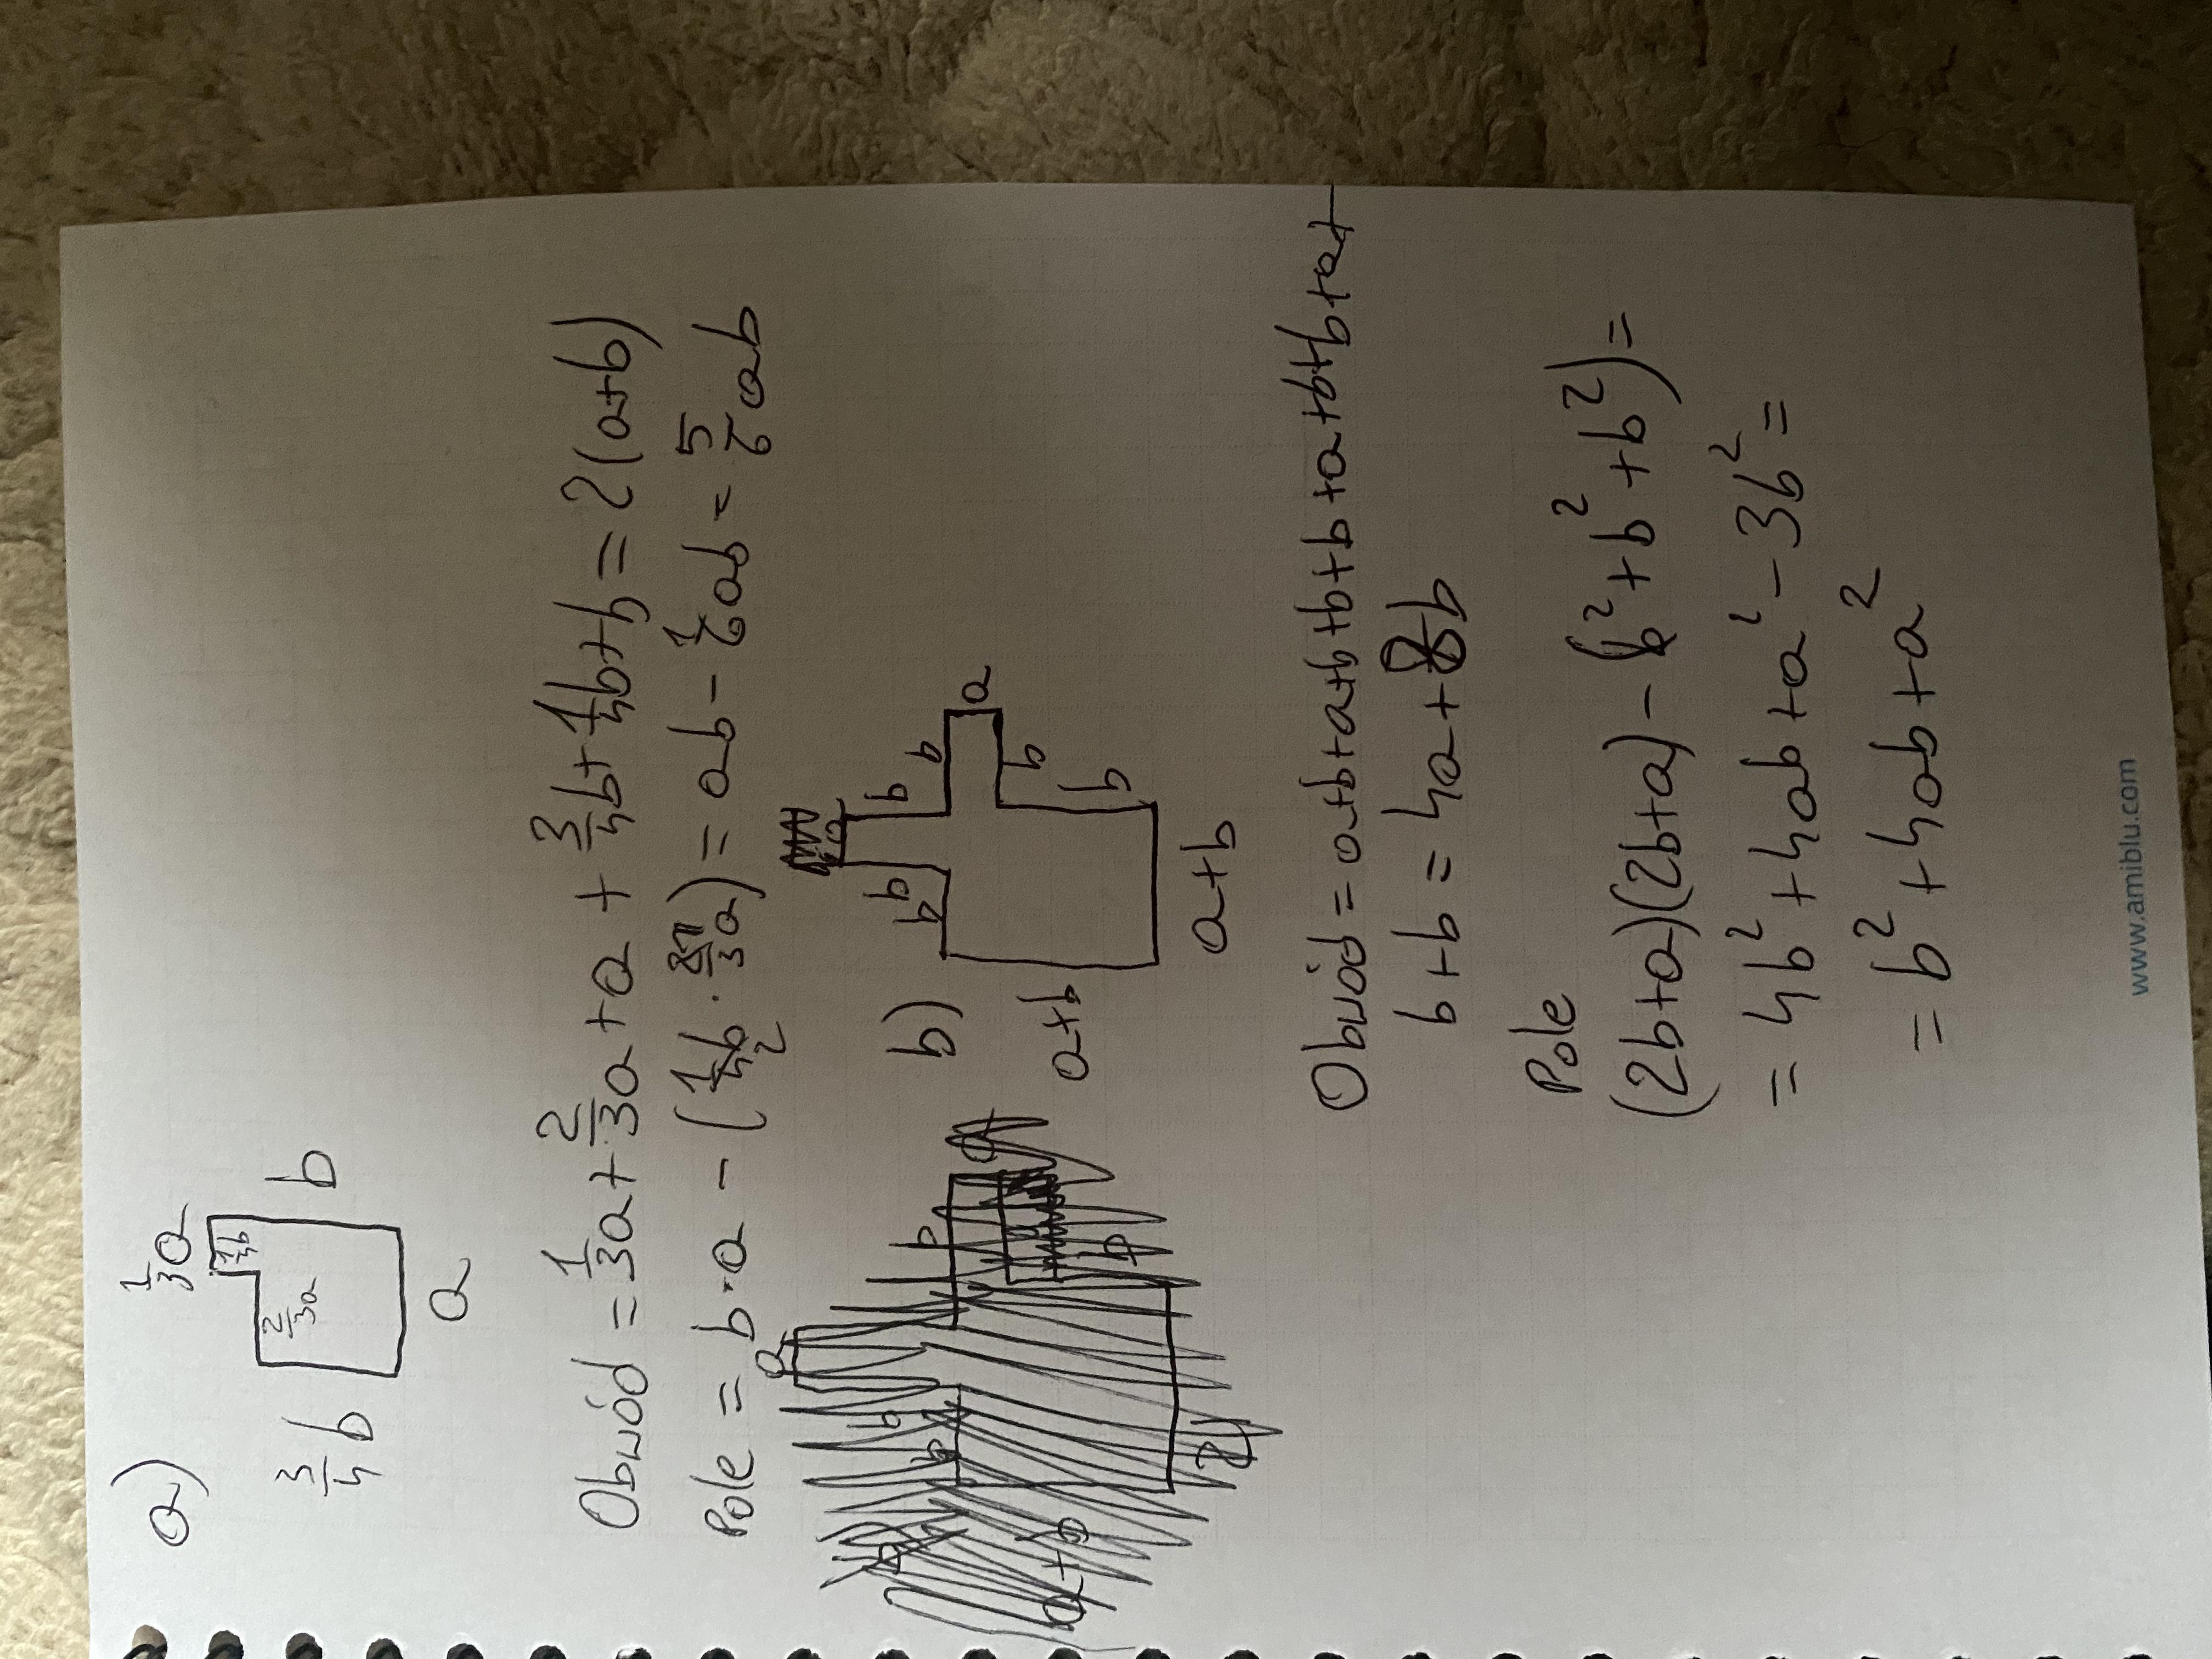 a)
1/3a
3/4b
2/3a
1/4b
b
a
Obwód = 1/3a + 2/3a + a + 3/4b + 1/4b + b = 2(a+b)
Pole = b·a - (1/4b · 2/3a) = ab - 1/6ab = 5/6ab
b)
a
b
b
b
b
a
b
b
a+b
a+b
Obwód = a+b+a+b+b+b+a+b+b+a+
b+b = 4a+8b
Pole
(2b+a)(2b+a) - (b²+b²+b²) =
= 4b²+4ab+a²-3b² =
= b²+4ab+a²
www.amiblu.com